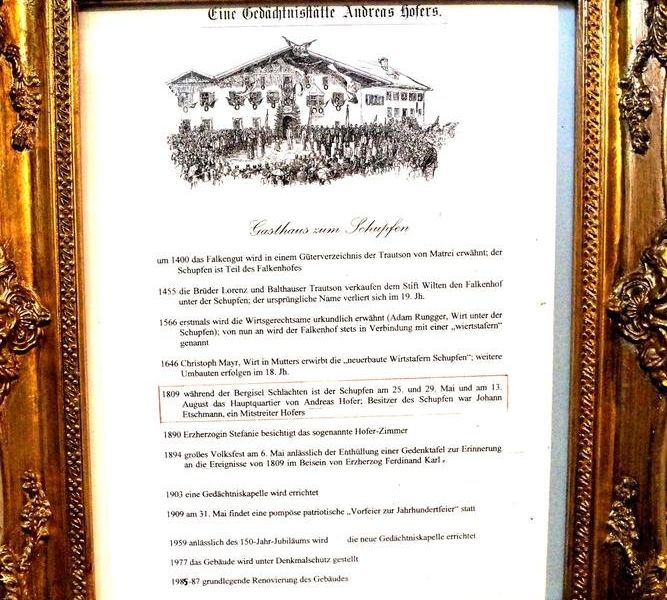 Eine Gedächtnisstätte Andreas Hofers.
Gasthaus zum Schupfen
um 1400 das Falkengut wird in einem Güterverzeichnis der Trautson von Matrei erwähnt; der
Schupfen ist Teil des Falkenhofes
1455 die Brüder Lorenz und Balthauser Trautson verkaufen dem Stift Wilten den Falkenhof
unter der Schupfen; der ursprüngliche Name verliert sich im 19. Jh.
1566 erstmals wird die Wirtsgerechtsame urkundlich erwähnt (Adam Rungger, Wirt unter der
Schupfen); von nun an wird der Falkenhof stets in Verbindung mit einer „wiertstafern"
genannt
1646 Christoph Mayr, Wirt in Mutters erwirbt die „neuerbaute Wirtstafern Schupfen"; weitere
Umbauten erfolgen im 18. Jh.
1809 während der Bergisel Schlachten ist der Schupfen am 25. und 29. Mai und am 13.
August das Hauptquartier von Andreas Hofer; Besitzer des Schupfen war Johann
Etschmann, ein Mitstreiter Hofers
1890 Erzherzogin Stefanie besichtigt das sogenannte Hofer-Zimmer
1894 großes Volksfest am 6. Mai anlässlich der Enthüllung einer Gedenktafel zur Erinnerung
an die Ereignisse von 1809 im Beisein von Erzherzog Ferdinand Karl.
1903 eine Gedächtniskapelle wird errichtet
1909 am 31. Mai findet eine pompöse patriotische „Vorfeier zur Jahrhundertfeier" statt
1959 anlässlich des 150-Jahr-Jubiläums wird die neue Gedächtniskapelle errichtet
1977 das Gebäude wird unter Denkmalschutz gestellt
1985-87 grundlegende Renovierung des Gebäudes